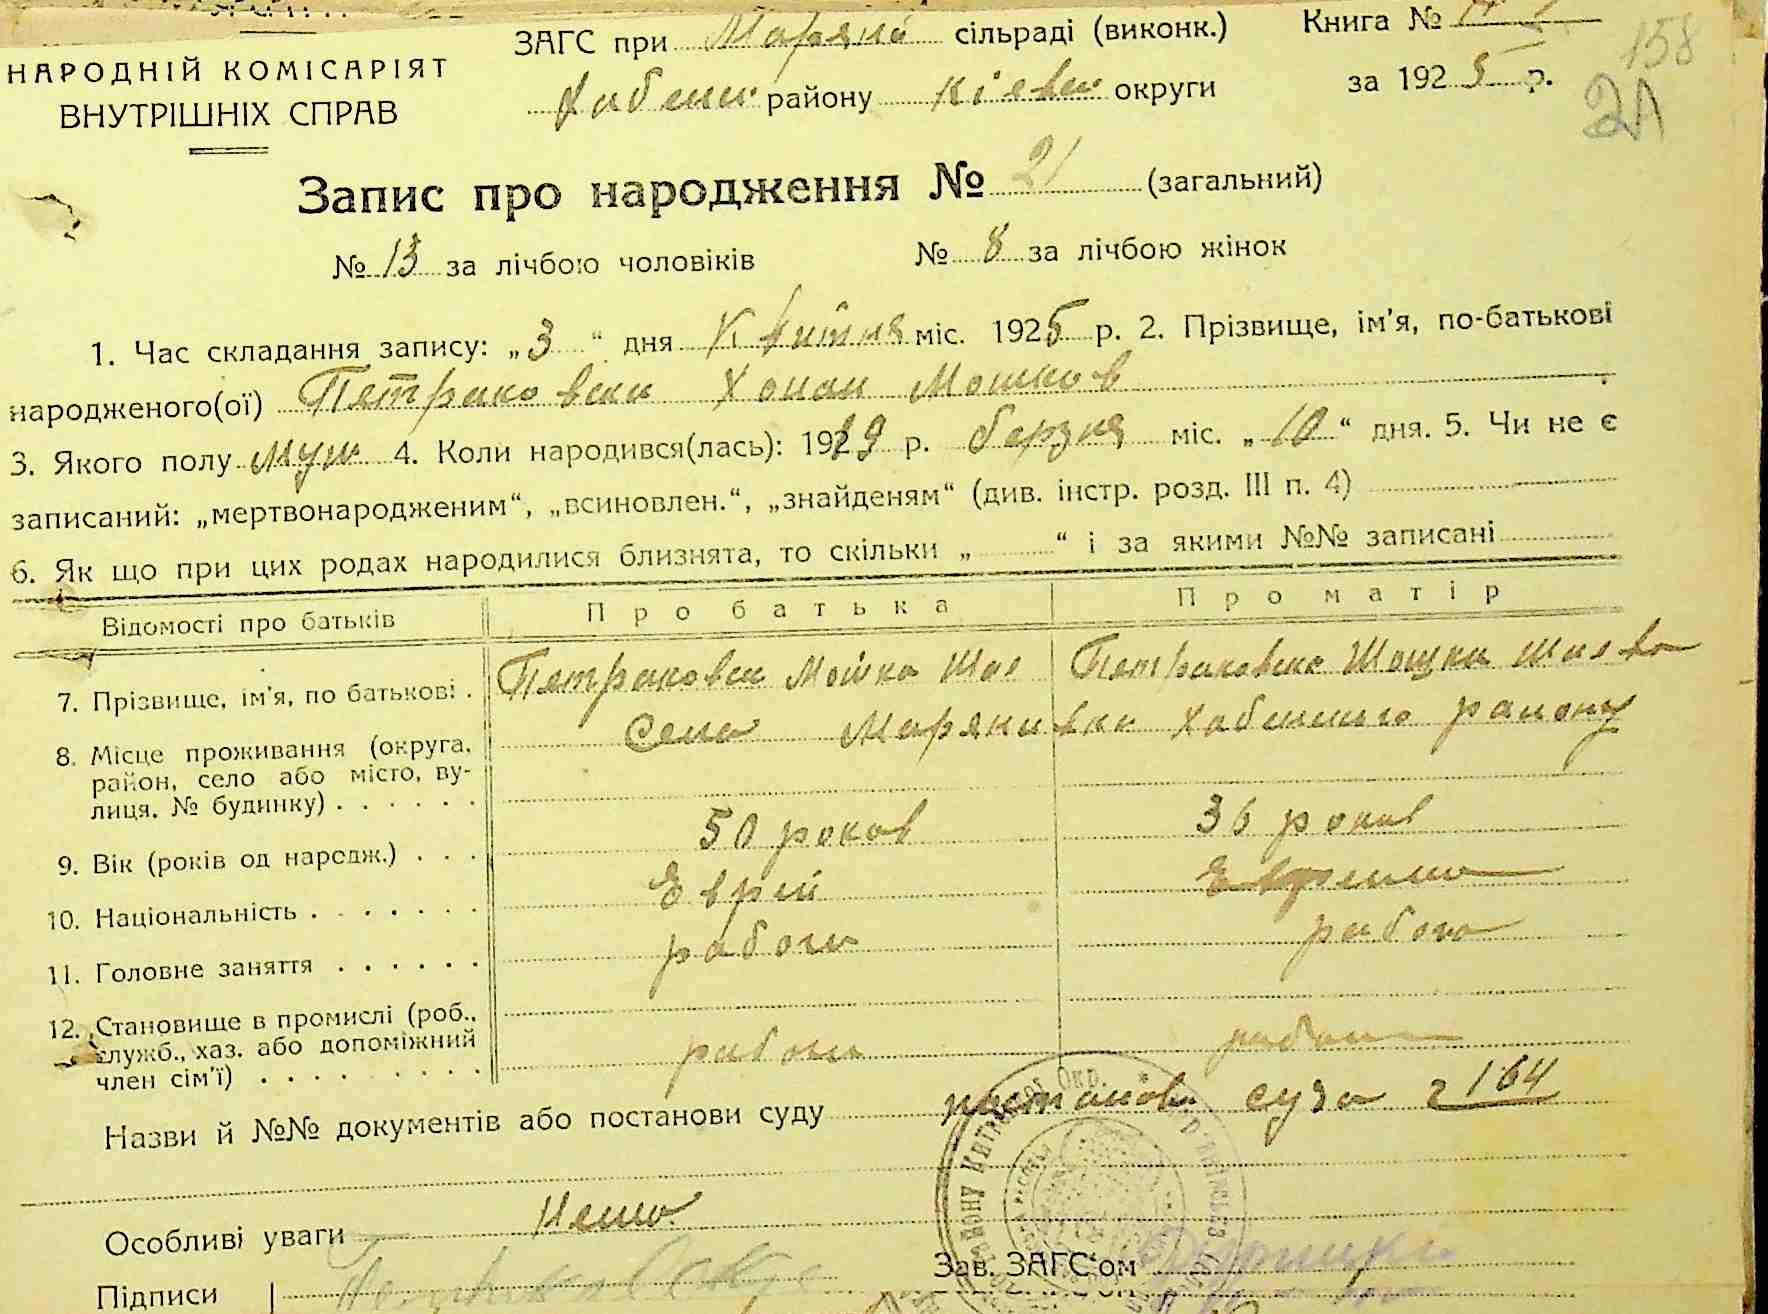 ЗАГС при Маряні сільраді (виконк.) Книга №
158
НАРОДНІЙ КОМІСАРІЯТ
ВНУТРІШНІХ СПРАВ
Хабенс району Київс округи за 1925 р.
21
Запис про народження № 21 (загальний)
№ 13 за лічбою чоловіків № 8 за лічбою жінок
1. Час складання запису: „3“ дня Квітня міс. 1925 р. 2. Прізвище, ім’я, по-батькові
народженого(ої) Петраковски Хонан Мошков
3. Якого полу муж 4. Коли народився(лась): 1919 р. берзня міс. „10“ дня. 5. Чи не є
записаний: „мертвонародженим“, „всиновлен.“, „знайденям“ (див. інстр. розд. III п. 4)
6. Як що при цих родах народилися близнята, то скільки „ “ і за якими №№ записані
Відомості про батьків Про батька Про матір
7. Прізвище, ім’я, по батькові . Петраковски Мошко Шае Петраковска Шаева
8. Місце проживання (округа, Село Марянивка Хабенского району
район, село або місто, ву-
лиця, № будинку) . . . . . .
9. Вік (років од народж.) . . . 50 роков 36 роков
10. Національність . . . . . . Еврей Еврейка
11. Головне заняття . . . . . . работи работа
12. Становище в промислі (роб.,
служб., хаз. або допоміжний работи
член сім’ї) . . . . . . . . .
Назви й №№ документів або постанови суду постанова суда 2 164
Особливі уваги Нема
Зав. ЗАГС’ом
Підписи